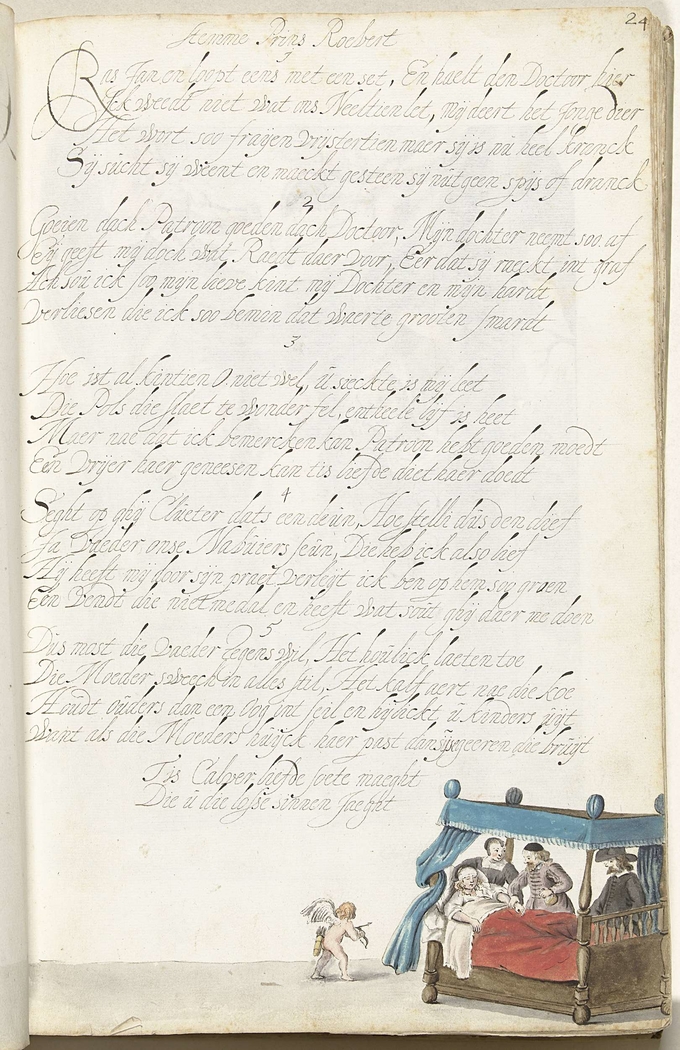 24
Stemme Prins Roebert
Ras Jan en loopt eens met een set, En haelt den Doctoor hier
Ick weedt niet wat ons Neeltien let, mij deert het Jonge dier
Het wort soo fraijen vrijstertien maer sij is nu heel Krenck
Sij sucht sij weent en maeckt gesteen sij nut geen spijs of dranck
2
Goeden dach Patroon goeden dach Doctoor, Mijn dochter neemt soo af
Eij geeft mij doch wat Raedt daer voor, Eer dat sij raeckt int graf
Ach sou ick soo mijn lieve kint mij Dochter en mijn hardt
Verliesen die ick soo bemin dat waerte grooten smardt
3
Hoe ist al kintien O niet wel, u sieckte is mij leet
Die Pols die slaet te wonder fel, entleele lijf is heet
Maer nae dat ick bemercken kan Patroon hebt goeden moedt
Een Vrijer haer geneesen kan tis liefde diet haer doedt
4
Seght op ghij Clueter dats een deun, Hoe stelli dus den dief
Ja Vaeder onse Nabuiers seun, Die heb ick also lief
Hij heeft mij door sijn praet verleijt ick ben op hem sou groen
Een Vendt die niet medal en heeft wat sout ghij daer me doen
5
Dus most die Vaeder tegens wil, Het houlick laeten toe
Die Moeder sweech in alles stil, Het kalf aert nae die koe
Houdt ouders dan een Oog int seil en hijlickt u kinders uijt
Want als die Moeders huijck haer past dan begeeren die bruijt
Tis Calver liefde soete maeght
Die u die losse sinnen Jaeght